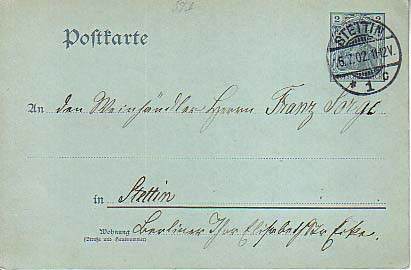 Postkarte
2 2
STETTIN
6.7.02. 11-12V.
* 1 C
An den Weinhändler Herrn Franz Sorge
in Stettin
Wohnung Berliner Thor Elisabethstr Ecke.
(Straße und Hausnummer)